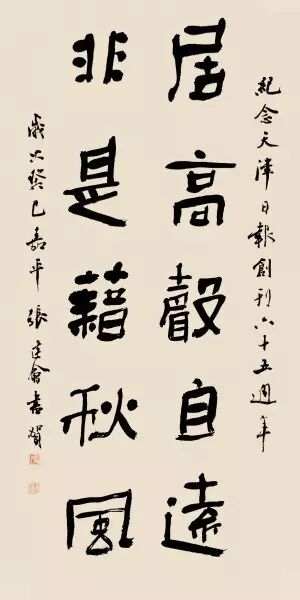 紀念天津日報創刊六十五週年
居高聲自遠
非是藉秋風
歲次癸巳嘉平 張建會書賀